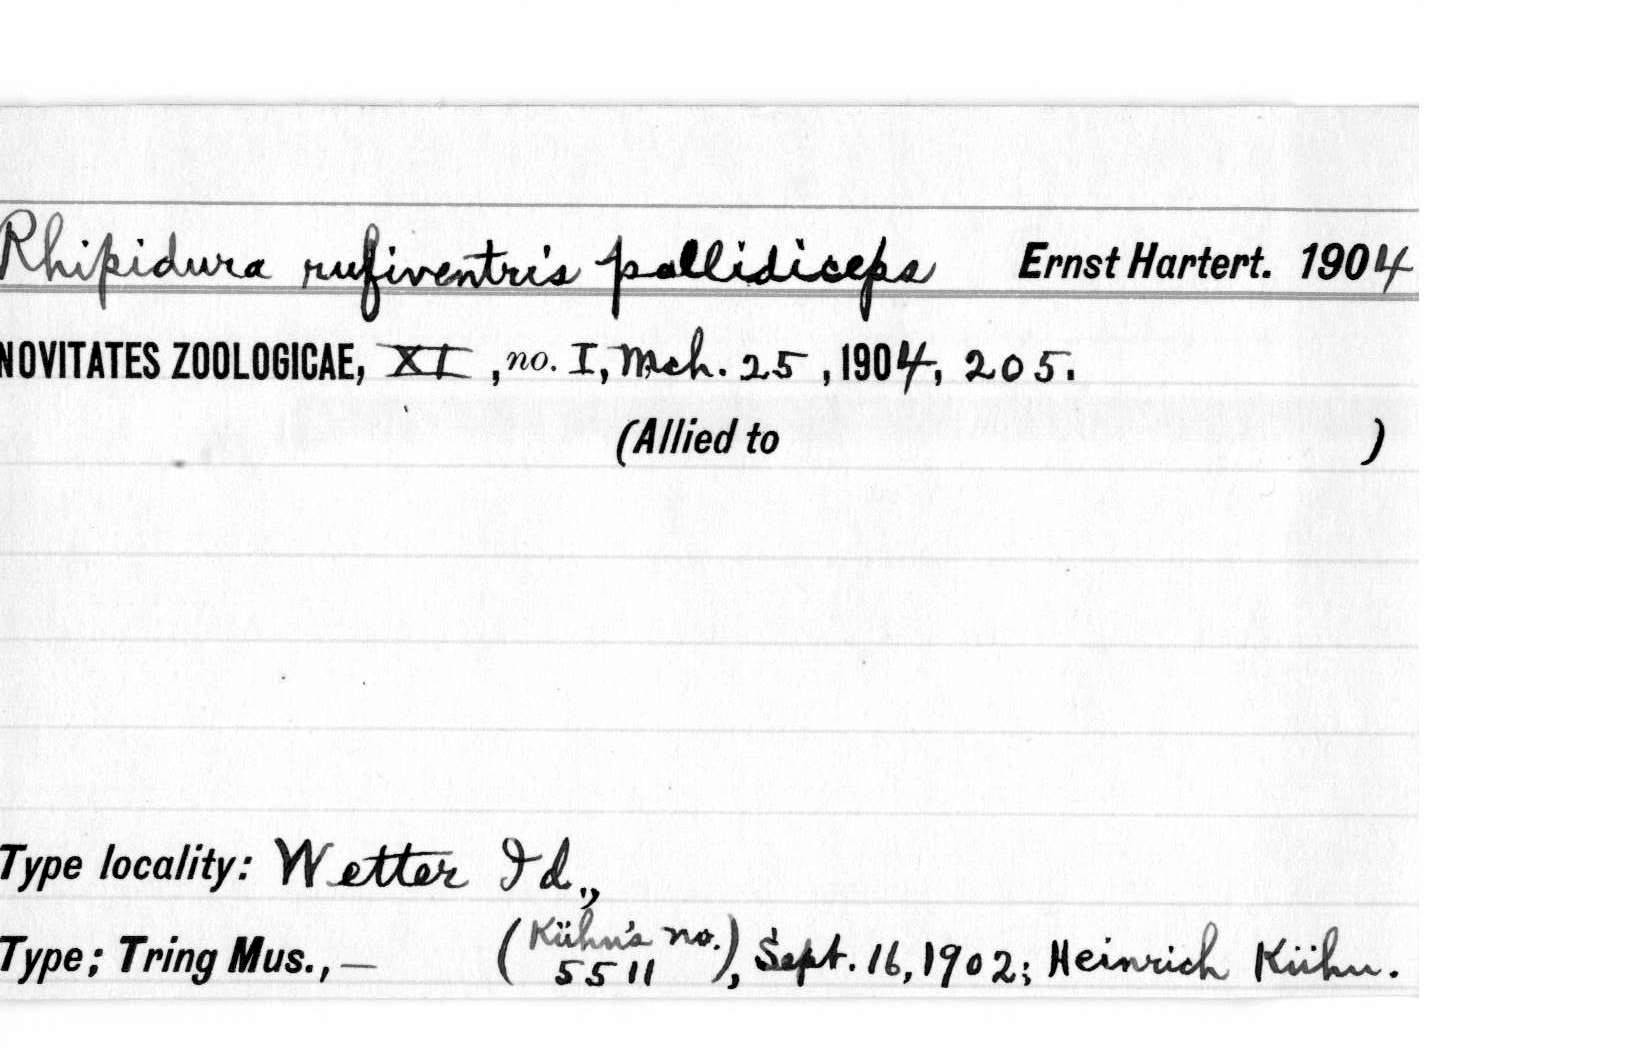 Rhipidura rufiventris pallidiceps Ernst Hartert. 1904
NOVITATES ZOOLOGICAE, XI, no. I, Mch. 25, 1904, 205.
(Allied to )
Type locality: Wetter Id.,
Type; Tring Mus., — (Kühn's no. 5511), Sept. 16, 1902; Heinrich Kühn.